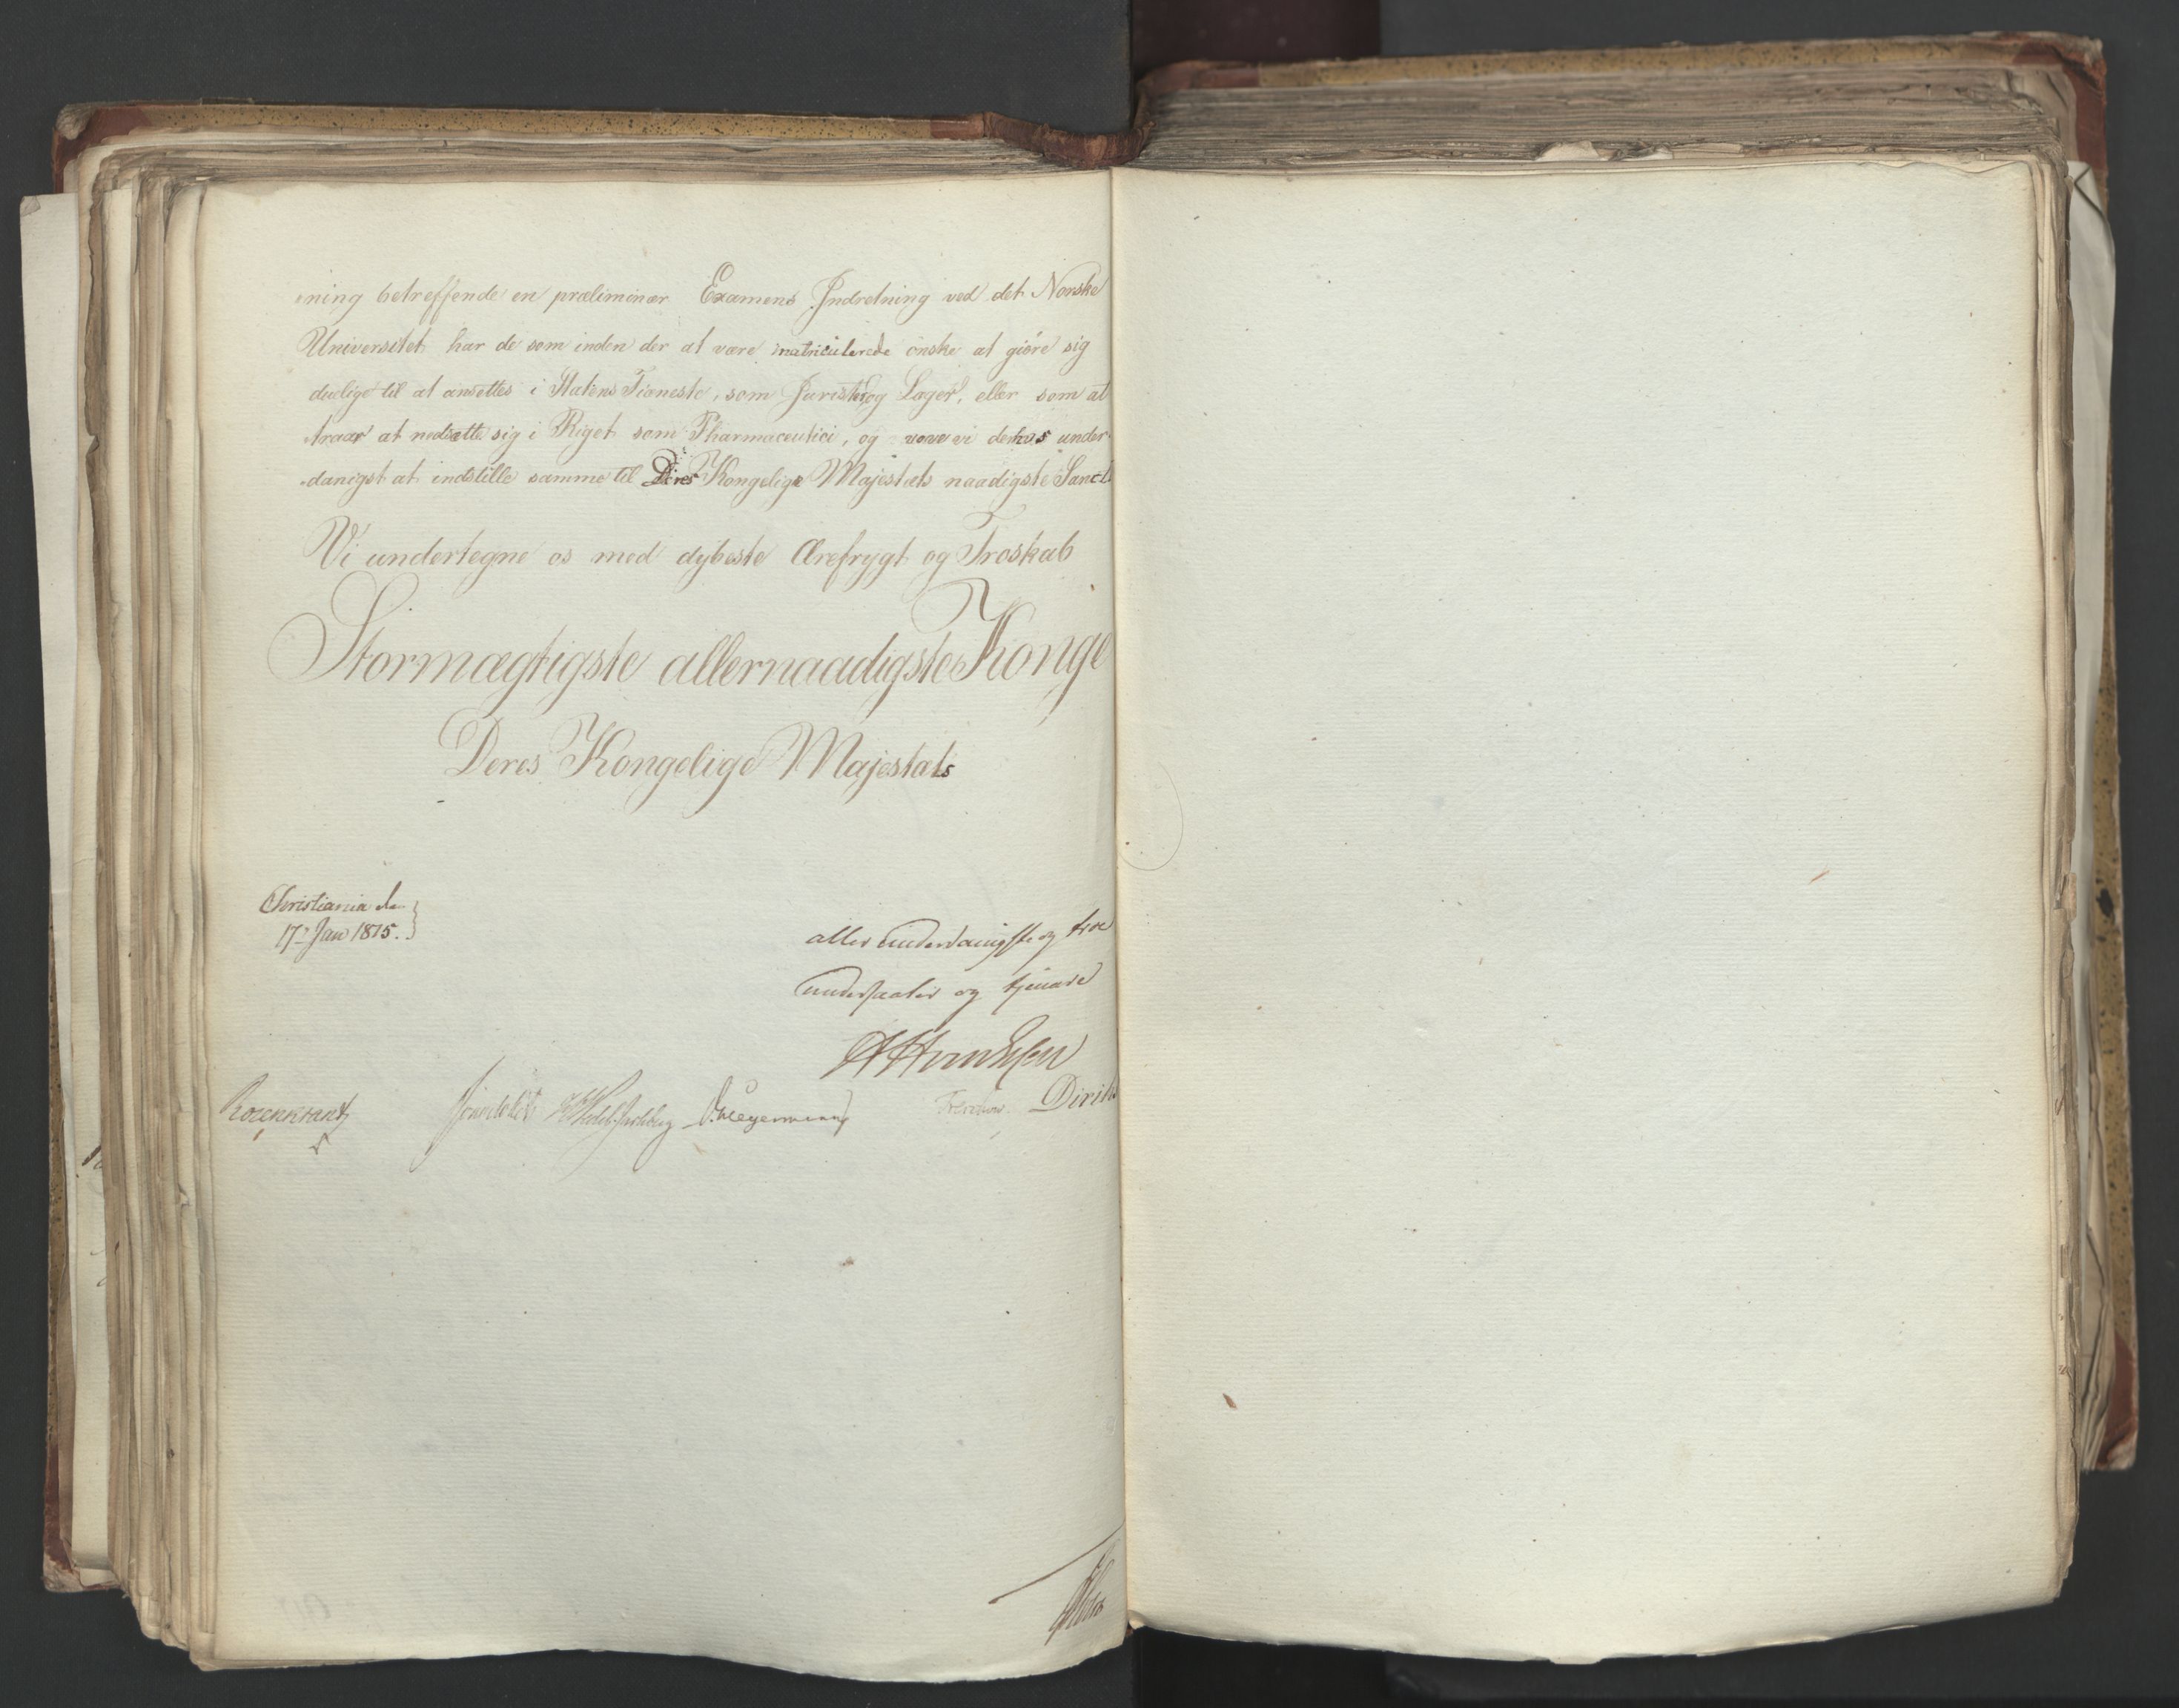 ning betreffende en præliminær Examens Indretning ved det Norske
Universitet har de som inden der at være matriculerede önske at giöre sig
duelige til at ansettes i Statens Tieneste, som Jurister og Læger, eller som at
traae at nedsætte sig i Riget som Pharmaceutici, og vove vi derhos under
danigst at indstille samme til Deres Kongelige Majestæts naadigste Sanct
Vi undertegne os med dybeste Ærefrygt og Troskab
Stormægtigste allernaadigste Konge
Deres Kongelige Majestæts
Christiania de
17 Jan 1815.
aller underdanigste og troe
undersaater og tjenere
Rosenkrantz
Hegermann
Treschow